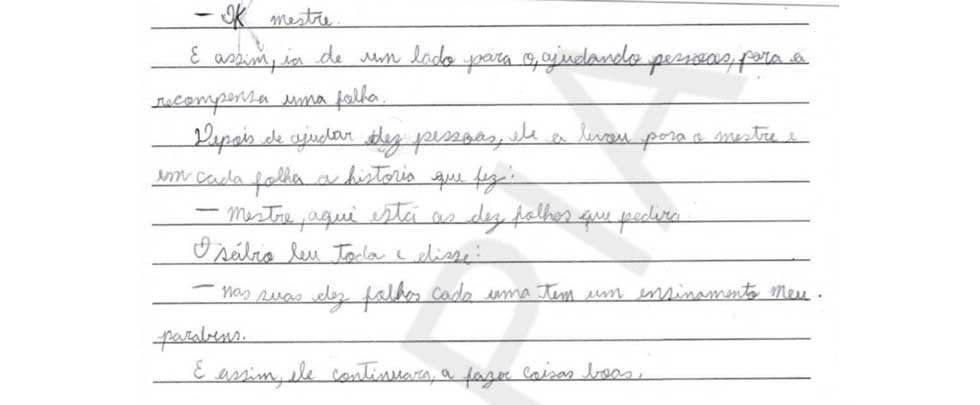 — OK mestre.
E assim, ia de um lado para o, ajudando pessoas, para a
recompensa uma folha.
Depois de ajudar dez pessoas, ele a levou para o mestre e
em cada folha a historia que fez:
— mestre, aqui está as dez folhas que pedira
O sábio leu toda e disse:
— nas suas dez folhas cada uma tem um ensinamento meu.
parabens.
E assim, ele continuara, a fazer coisas boas.
PIA